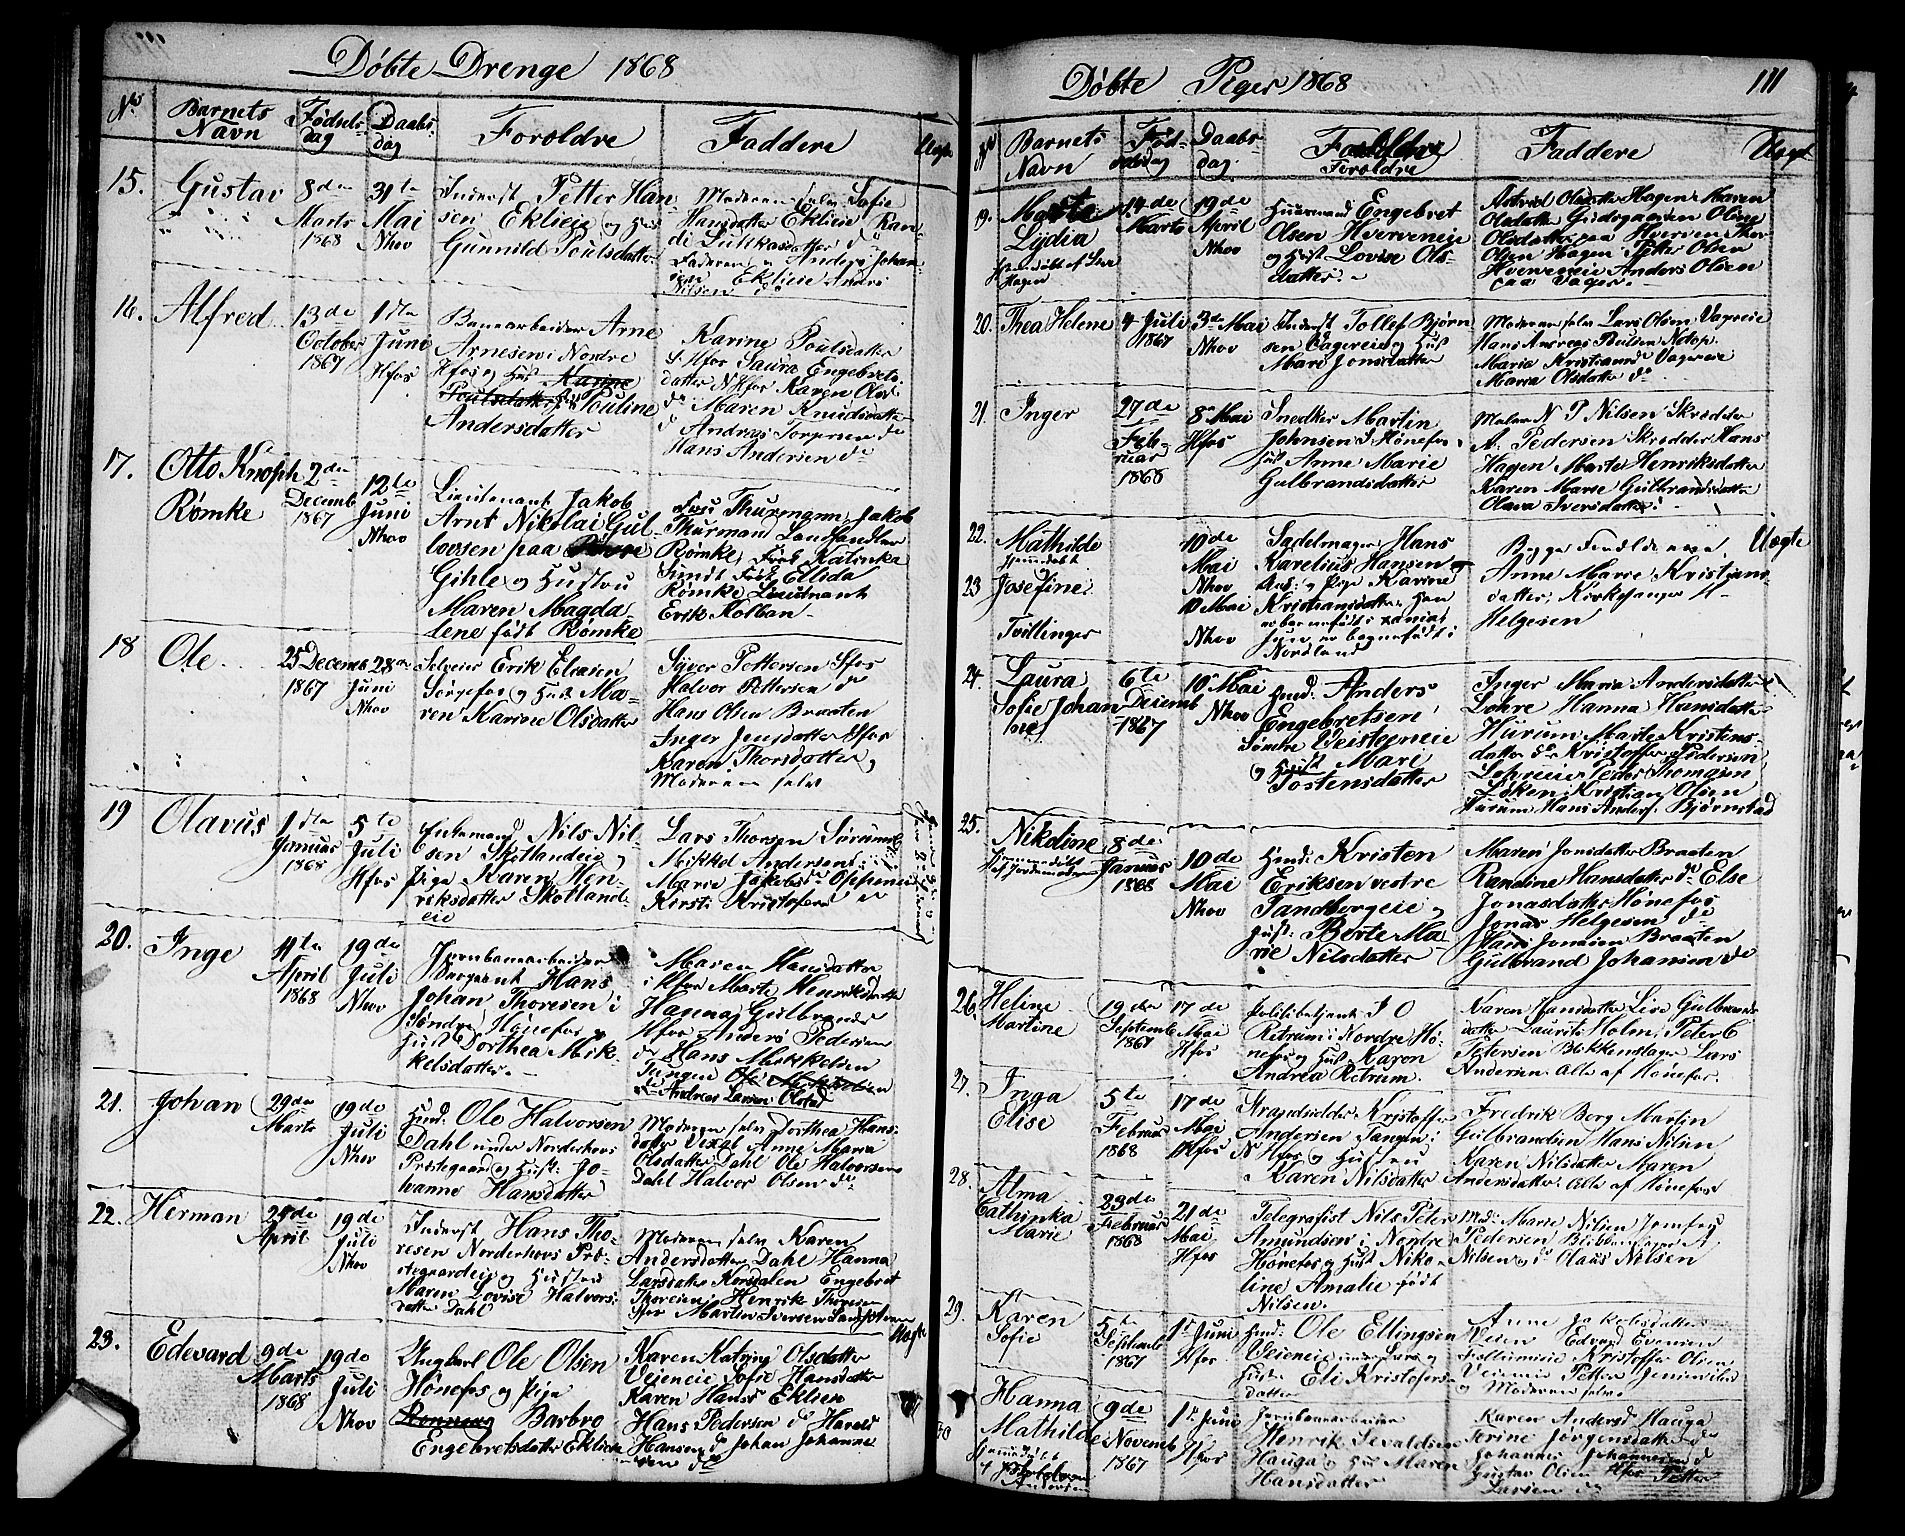 Døbte Drenge 1868
No Barnets Navn Fødsels dag Daabs dag Foroldre Faddere Uægte
15. Gustav 8de Marts 1868 31te Mai Nhov
Inderst Petter Han
sen Eklieie og Hus
Gunnild Poulsdatter
Moderen selv Sofie
Hansdatter Eklieie Ran
di Lukkasdatter do
Faderen og Anders Johan
sen Eklieie Anders
Nilsen do
16. Alfred 13de October 1867 1ste Juni Hfos
Banearbeider Arne
Arnesen i Nordre
Hfos og Hus Karine
Poulsdatter Pouline
Andersdatter
Karine Poulsdatter
S. Hfos Laura Engebrets
datter N Hfos Karen Olsd
do Maren Knudsdatter
do Andreas Torgersen do
Hans Andersen do
17. Otto Knoph Rømke 2den Decemb 1867 12te Juni Nhov
Lieutenant Jakob
Arnt Nikolai Gul
lovsen paa
Gihle og Hustru
Maren Magda
lene født Rømke
Fru Thurmann, Jakob
Thurmann Landhandler
Rømke, Frøk Katinka
Sundt Frøk Ellida
Rømke Lieutnant
Erik Kolban
18 Ole 25 Decemb 1867 28de Juni Nhov
Selveier Erik Elvsien
Sørgefos og Hust Ma-
ren Karine Olsdatter
Syver Pettersen Hfos
Halvor Pettersen do
Hans Olsen Braaten
Inger Jensdatter Hfos
Karen Thorsdatter og
Moderen selv
19 Olavus 1ste Januar 1868 5te Juli Hfos
Enkemand Nils Nil-
sen Skotlandeie og
Pige Karen Hen-
riksdatter Skotland-
eie
Lars Thorsen
Mikkel Andersen
Marie Jakobsdr Oppeneie
Kirsti Kristofersd
20. Inge 4te April 1868 19de Juli Nhov
Jernbanearbeider
Sergeant Hans
Johan Thoresen i
Søndre Hønefos og
Hust Dorthea Mik-
kelsdatter.
Maren Hansdatter
i Hfos Marte Henriksdatter
Hanna Gulbrands
Hfos Anders Pedersen
do Hans Mikkelsen
Tangen Ole Mikkelsen
Andreas Larsen Olstad
21. Johan 29de Marts 19de Juli Nhov
Husd. Ole Halvorsen
Dahl under Norderhovs
Prestegaard og Hust: Jo-
hanne Hansdatter
Moderen selv Dorthea Hans-
datter Vexal Anne Maria
Olsdatter Dahl Ole Halvorsen
Dahl Halvor Olsen do
22. Herman 24de April 19de Juli Nhov
Inderst Hans Tho-
resen Norderhovs Præ-
stegaardeie og Hustru
Maren Lovise Halvors-
datter Dahl
Moderen selv Karen
Andersdatter Dahl Hanna
Larsdatter Korsdalen Engebret
Thoresen Henrik Thoresen
Hfos Martin Iversen
23. Edevard 9de Marts 1868 19de Juli Nhov Uægte
Ungkarl Ole Olsen
Hønefos og Pige
Barbro
Engebretsdatter Eklieie
Karen Katrine Olsdatter
Veieneie Sofie Hansdatter
Karen Hansd Eklieie
Hans Pedersen do Harald
Hansen do Johan Johanne-
sen do
Døbte Piger 1868 111
No Barnets Navn Fødselsdag Daabsdag. Foroldre Faddere Uægt
19. Marta Lydia 14de Marts 19de April Nhov
hjemmedøbt af
Hagen
Huusmand Engebret
Olsen Hverveneie
og Hust Lovise Ols-
datter.
Astrid Olsdatter Hagen Maren
Olsdatter Gudsgaarden Oline
Olsdatter paa Hversen Thor
Olsen Hagen Petter Olsen
Hverveneie Anders Olsen
paa Vager.
20. Thea Helene 4 Juli 1867 3de Mai Nhov
Inderst Tollef Bjørn
sen Vagereie og Hust
Mari Jonsdatter
Moderen selv Lars Olsen Vagereie
Hans Andreas Poulsen
Maria Kristiansdr Vagereie
Maria Olsdatter do
21. Inger 27de Februar 1868 8de Mai Hfos
Snedker Martin
Johnsen S Hønefos
Hust Anne Marie
Gulbrandsdatter
Maler N P Nilsen Skrædder
A. Pedersen Skrædder Hans
Hagen Marte Henriksdatter
Karen Marie Gulbrandsdatter
Olava Iversdatter
22. Mathilde hjemmedøbt 10de Mai Nhov
23 Josefine. Tvillinger 10 Mai Nhov
Sadelmager Hans
Karelius Hansen
og Pige Karine
Kristiansdatter, Han
er barnefødt i
hun er bagnefødt i
Nordland
Bygger
Anne Marie Kristians
datter, Kirkesanger H
Helgesen
Uægte
24. Laura Sofie Johan ne 6te Decemb 1867 10de Mai Nhov
Husd. Anders
Engebretsen
Søndre Veisteeneie
og Hust Mari
Tostensdatter
Inger Maria Andersdatter
Lohre Hanna Hansdatter
Hurum Marte Kristens-
datter do Kristoffer Pedersen
Lohreeie Peder Thomasen
Løken Kristian Olsen
Hurum Hans Anders. Bjørnstad
25. Nikoline 8de Januar 1868 10de Mai Nhov
Hjemmedøbt af Jordemoderen
Husd: Kristen
Eriksen vestre
Tandbergeie og
Hust: Berte Ma
rie Nilsdatter
Maren Jonsdatter Braaten
Randine Hansdatter do Else
Jonasdatter Hønefos
Jonas Helgesen do
Hans Jonsen Braaten
Gulbrand Johansen do
26. Heline Martine 19de Septemb 1867 17de Mai Hfos
Politibetjent I O
Retrum i Nordre Hø-
nefos og Hust Karen
Andrea Retrum.
Karen Hansdatter Lise Gulbrands
datter Laurits Holm, Peter C
Petersen Blikkenslager Lars
Andersen. Alle af Hønefos.
27. Inga Elise 5te Februar 1868 17de Mai Hfos
Strandsidder Kristoffer
Andersen Tangen i
N Hfos og Hustru
Karen Nilsdatter
Fredrik Berg Martin
Gulbrandsen Hans Nilsen
Karen Nilsdatter Maren
Andersdatter. Alle af Hønefos
28. Alma Cathinka Marie 23de Februar 1868 21de Mai Hfos
Telegrafist Nils Peter
Amundsen i Nordre
Hønefos og Hust Niko-
line Amalie født
Nilsen.
Md: Marie Nilsen Jomfru
Pedersen Blikkenslager A
Nilsen og Claus Nilsen
29. Karen Sofie 5te Septemb 1867 1ste Juni Hfos
Husd: Ole Ellingsen
Veieneie under
Hust Eli Kristofers-
datter
Anne Jakobsdatter
Veien Edvard Evensen
Follumeie Kristoffer Olsen
Veieneie Petter
og Moderen selv.
30 Hanna Mathilde 9de Novemb 1867 1ste Juni Hfos
hjemmedøbt
Jernbanearbeider
Henrik Sevaldsen
Hauga og Hus Maren
Hansdatter
Karen Andersd Hauga
Torine Jørgensdatter do
Johannes Johannesen do
Gustav Olsen Hfos Petter
Larsen do